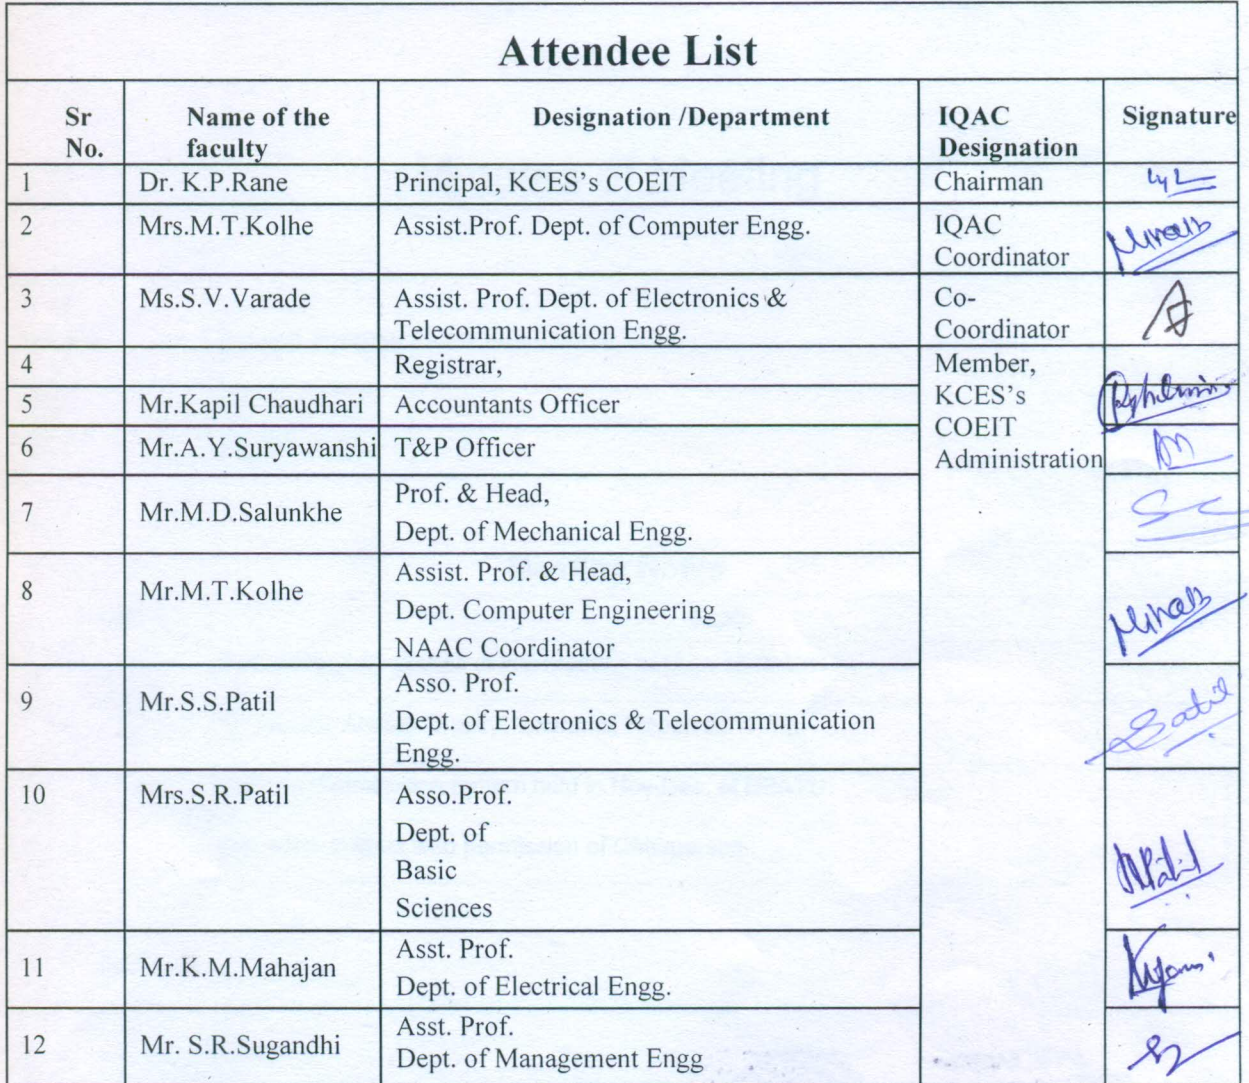 Attendee List
Sr No. Name of the faculty Designation /Department IQAC Designation Signature
1 Dr. K.P.Rane Principal, KCES's COEIT Chairman
2 Mrs.M.T.Kolhe Assist.Prof. Dept. of Computer Engg. IQAC Coordinator
3 Ms.S.V.Varade Assist. Prof. Dept. of Electronics & Co-
Telecommunication Engg. Coordinator
4 Registrar, Member,
5 Mr.Kapil Chaudhari Accountants Officer KCES's
COEIT
6 Mr.A.Y.Suryawanshi T&P Officer Administration
7 Mr.M.D.Salunkhe Prof. & Head,
Dept. of Mechanical Engg.
8 Mr.M.T.Kolhe Assist. Prof. & Head,
Dept. Computer Engineering
NAAC Coordinator
9 Mr.S.S.Patil Asso. Prof.
Dept. of Electronics & Telecommunication
Engg.
10 Mrs.S.R.Patil Asso.Prof.
Dept. of
Basic
Sciences
11 Mr.K.M.Mahajan Asst. Prof.
Dept. of Electrical Engg.
12 Mr. S.R.Sugandhi Asst. Prof.
Dept. of Management Engg